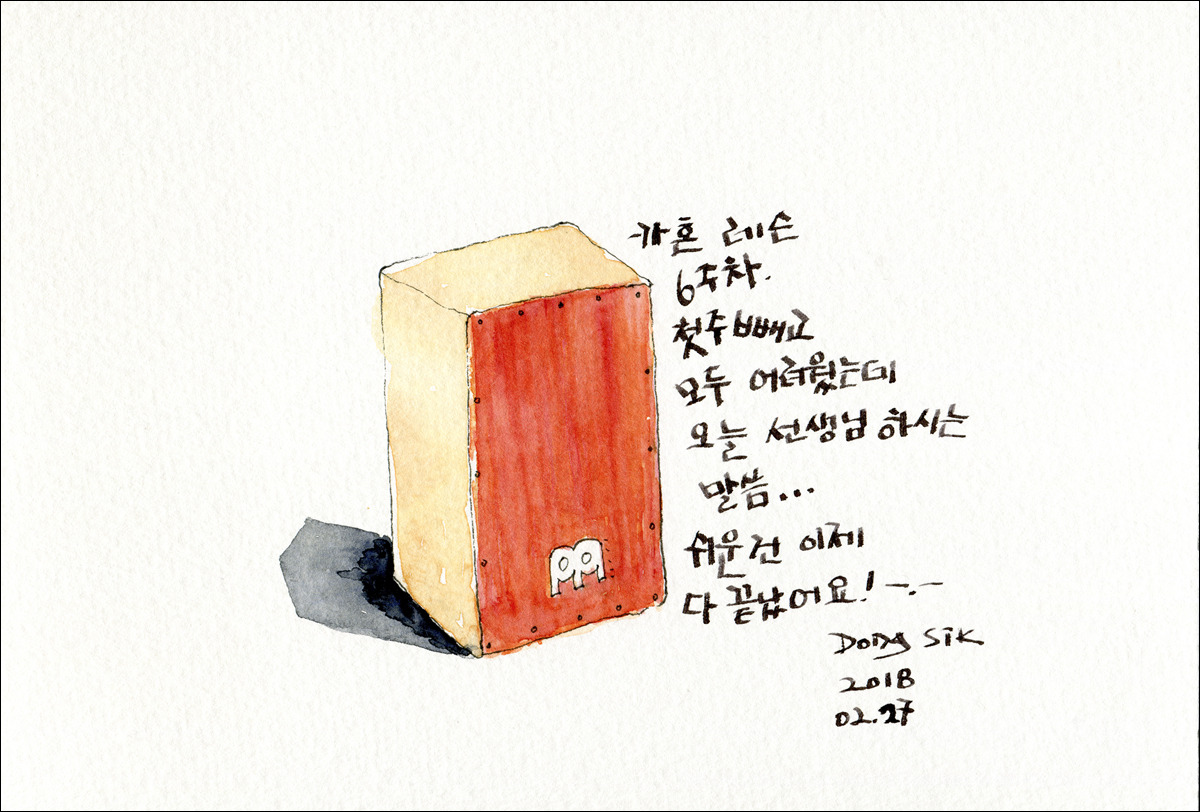 카혼 레슨
6주차.
첫주 빼고
모두 어려웠는데
오늘 선생님 하시는
말씀...
쉬운건 이제
다 끝났어요! -.-
Dong Sik
2018
02.27